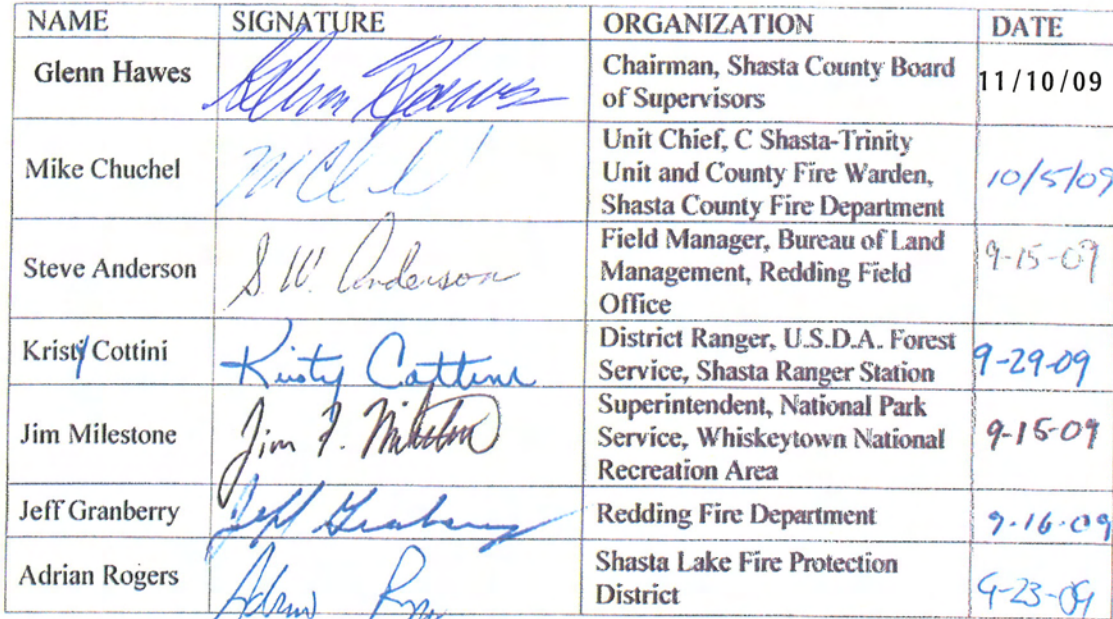 NAME SIGNATURE ORGANIZATION DATE
Glenn Hawes Glenn Hawes Chairman, Shasta County Board
of Supervisors 11/10/09
Mike Chuchel Unit Chief, C Shasta-Trinity
Unit and County Fire Warden,
Shasta County Fire Department 10/5/09
Steve Anderson S. W. Anderson Field Manager, Bureau of Land
Management, Redding Field
Office 9-15-09
Kristy Cottini Kristy Cottini District Ranger, U.S.D.A. Forest
Service, Shasta Ranger Station 9-29-09
Jim Milestone Jim F. Milestone Superintendent, National Park
Service, Whiskeytown National
Recreation Area 9-15-09
Jeff Granberry Jeff Granberry Redding Fire Department 9-16-09
Adrian Rogers Shasta Lake Fire Protection
District 9-23-09